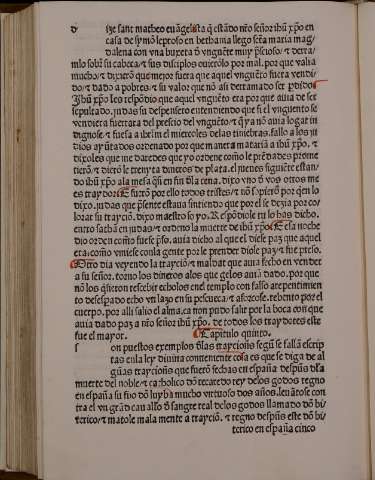 d ize sant matheo euãgelista q̃ estãdo nr̃o señor ihũ xp̃o en
casa de symõ leproso en bethania llego sct̃a maria mag/
dalena con vna buxeta d̃ vnguẽte muy p̃cioso/ ⁊ derra/
molo sobr̃ su cabeca/⁊ sus disciplos ouierõlo por mal. por que valia
mucho/⁊ dixierõ que mejor fuera que aquel vnguẽto fuera vendi/
do/⁊ dado a pobres/⁊ su valor que nõ asi derramado ser p̱dido
Ihũ xp̃o les respõdio que aquel vnguẽto era por que auia de ser
sepultado. judas su despensero entendiendo que si el vnguento se
vendiera furtara del prescio del vnguẽto/⁊ q̃ ya nõ auia logar in
dignose. ⁊ fuese a ibrl̃m el miercoles delas tiniebras. fallo a los iu
dios ayũtados ordenado por que manera mataria a ihũ xp̃o. ⁊
dixoles que me daredes que yo ordene como le prẽdades prome
tierõ/⁊ dierõ le treynta dineros de plata. el jueues siguiẽte estan/
do ihũ xp̃o ala mesa q̃si en fin d̃la cena. dixo vno d̃ vos otros me
es traydor E fuerõ por ello todos tristes/⁊ nõ supierõ por q̃en lo
dixo. judas que p̃sente estaua sintiendo que por el se dezia por co/
lorar su trayciõ. dixo maestro so yo. Respõdiole tu lo has dicho.
entro sathã en judas/⁊ ordeno la muerte de ihũ xp̃o E esa noche
dio orden como fuese p̃so. auia dicho al que el diese paz que aquel
era: como viniese conla gente por le prender diole paz/⁊ fue preso.
Otro dia veyendo la trayciõ/⁊ maldat que auia fecho en vender
a su señor. torno los dineros alos que gelos auiã dado. por que
nõ los q̃sieron rescebir echolos enel templo con falso arepentimien
to desesperado echo vn lazo en su pescueça/⁊ aforcose. rebento por el
cuerpo. por alli salio el alma. ca non pudo salir por la boca con que
auia dado paz a nr̃o señor ihũ xp̃o. de todos los traydores este
fue el mayor. Capitulo quinto.
s on puestos exemplos d̃las trayciones segũ se fallã escrip
tas enla ley diuina conueniente cosa es que se diga de al
gũas trayciões que fuerõ fechas en españa despues d̃la
muerte del noble/⁊ catholico dõ recaredo rey delos godos regno
en españa su fijo dõ luyba mucho virtuoso dos años. leuãtose con
tra el vn grãd cauallo d̃ sangre real delos godos llamado dõ bi
terico/⁊ matole mala mente a trayciõ. ⁊ regno despues este dõ bi
terico en españa cinco